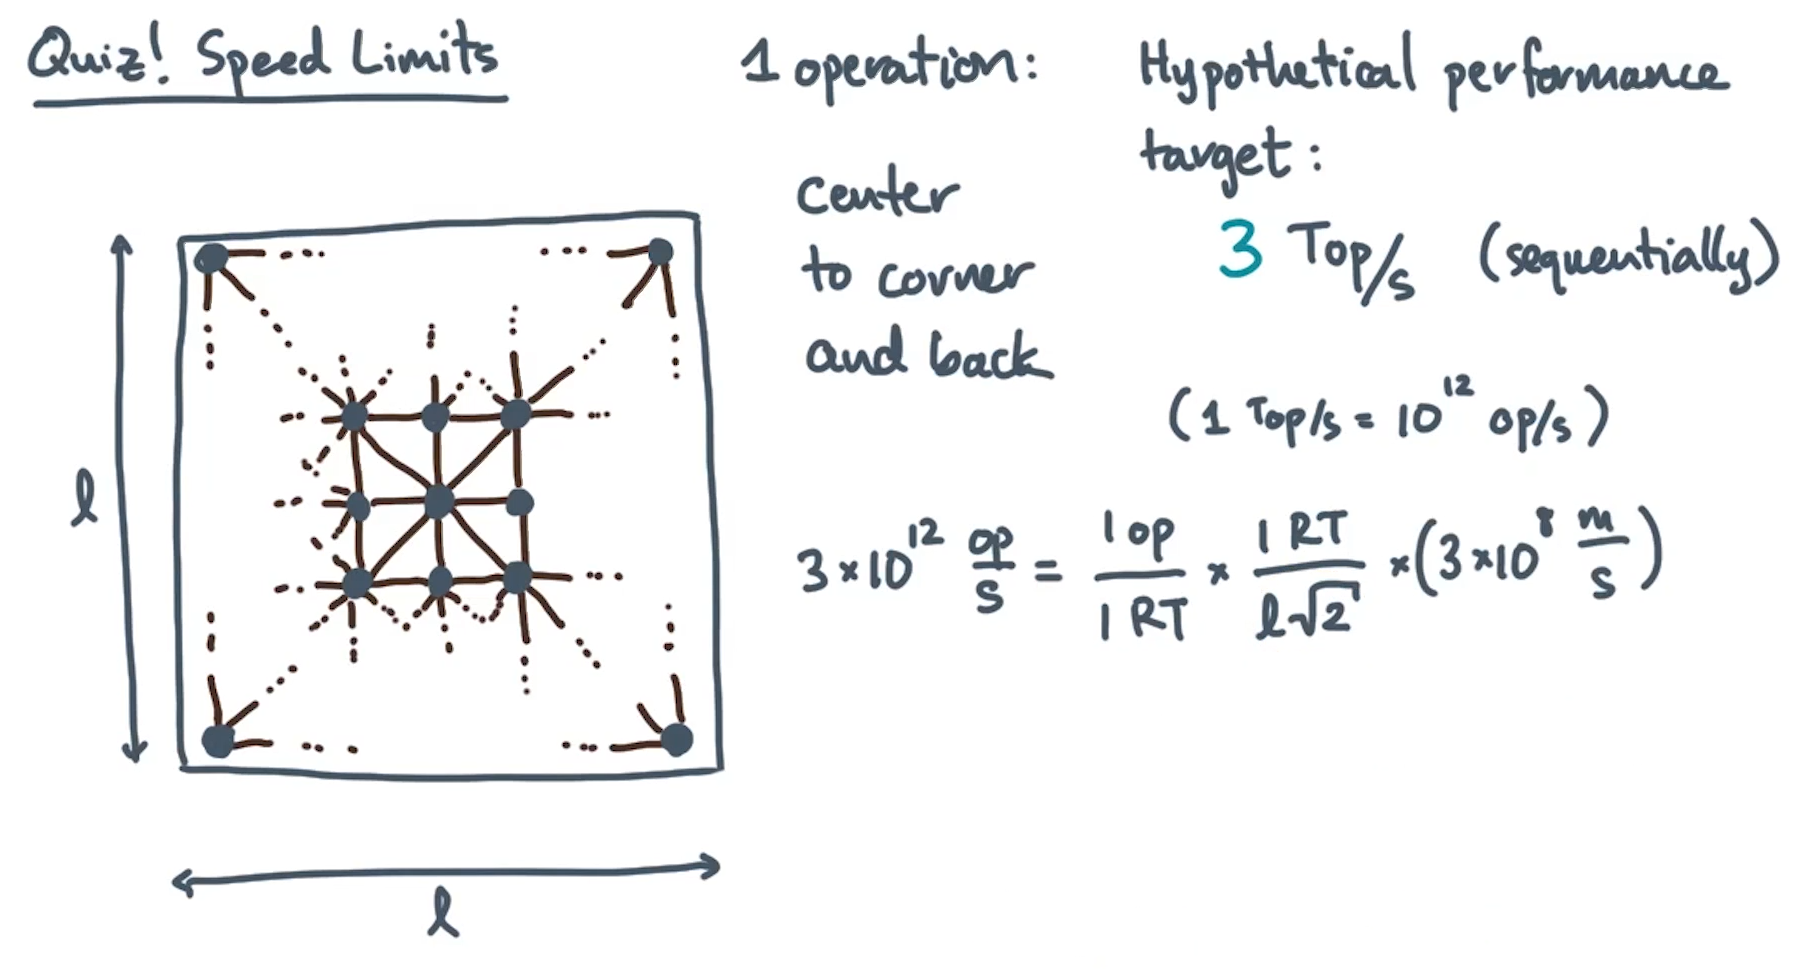 Quiz! Speed Limits
1 operation:
center
to corner
and back
Hypothetical performance
target:
3 Top/s (sequentially)
(1 Top/s = 10^12 op/s)
3×10^12 op/s = 1 op/1 RT × 1 RT/l√2 × (3×10^8 m/s)
l
l